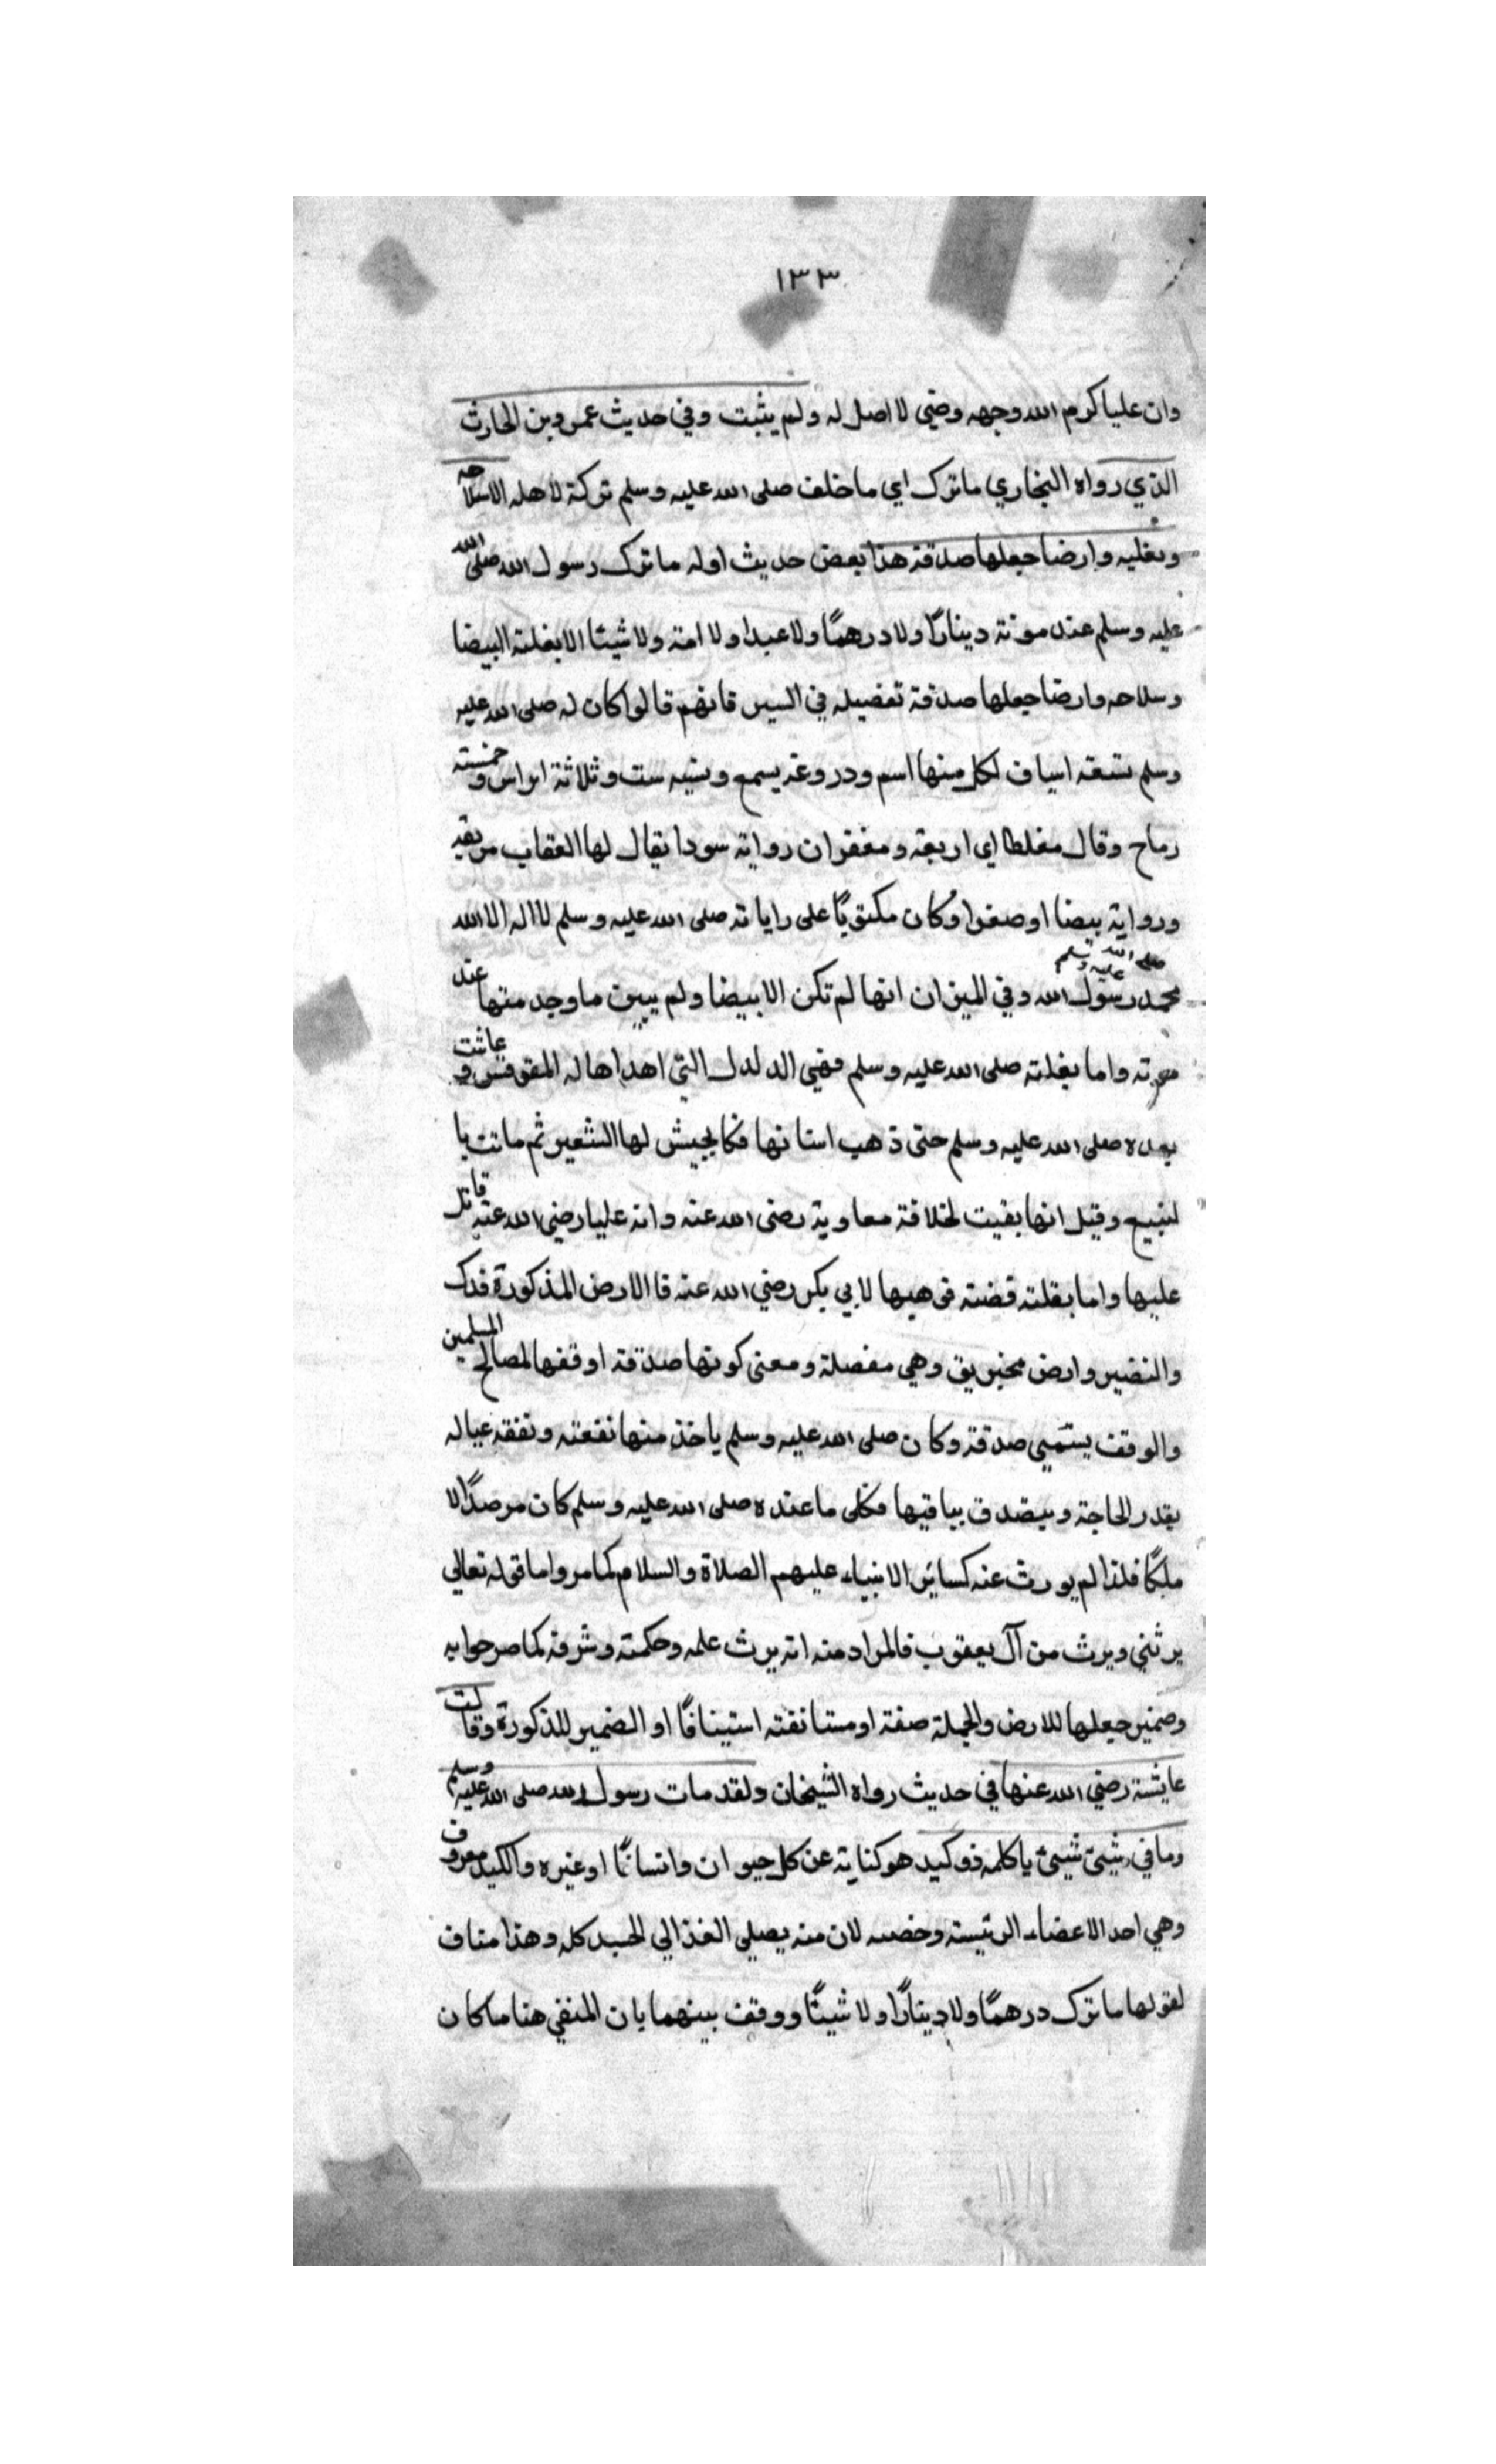 ١٣٣
وان عليا كرم الله وجهه وضي لا اصل له ولم يثبت وفي حديث عمرو بن الحارث
الذي رواه البخاري ما ترك اي ما خلف صلى الله عليه وسلم تركة لاهله الاسلاحه
وبغليه وارضا جعلها صدقة هذا بعض حديث اوله ما ترك رسول الله صلى الله
عليه وسلم عند موته دينارًا ولا درهمًا ولا عبدا ولا امة ولا شيئا الا بغلته البيضا
وسلاحه وارضا جعلها صدقة تفصيله في السير فانهم قالوا كان له صلى الله عليه
وسلم تسعة اسياف لكل منها اسم ودروعه بسمع وسيه ست وثلاثة اتراس وخمسته
رماح وقال مغلطاي اربعة ومغفران رواية سودا يقال لها العقاب مربعة
ورواية بيضا او صفرا وكان مكتوبًا على راياته صلى الله عليه وسلم لا اله الا الله
محمد رسول الله صلى الله عليه وسلم وفي الميزان انها لم تكن الا بيضا ولم يبين ما وجد منها عند
موته واما بغلته صلى الله عليه وسلم فهي الدلدل التي اهداها له المقوقس وعاشت
بعده صلى الله عليه وسلم حتى ذهب اسنانها فكا يجيش لها الشعير ثم ماتت با
لينبع وقيل انها بقيت لخلافة معاوية رضى الله عنه وانه عليا رضى الله عنه قاتل
عليها واما بغلته فضته فوهبها لابي بكر رضي الله عنه فا الارض المذكورة فدك
والنضير وارض مخيريق وهي مفصلة ومعنى كونها صدقة اوقفها لمصالح المسلمين
والوقف يستمي صدقة وكان صلى الله عليه وسلم ياخذ منها نفقته ونفقة عياله
بقدر الحاجة ويتصدق بباقيها فكلى ما عنده صلى الله عليه وسلم كان مرصدًا لا
ملكًا فلذا لم يورث عنه كسائر الانبياء عليهم الصلاة والسلام كما مر واما قوله تعالى
يرثني ويرث من آل يعقوب فالمراد منه انه يرث علمه وحكمته وشرفه كما صرحوا به
وضمير جعلها للارض والجملة صفة او مستانفته استينافًا او الضمير للذكورة وقالت
عايشة رضي الله عنها في حديث رواه الشيخان ولقد مات رسول الله صلى الله عليه وسلم
وما في شيئ ياكله ذو كبد هو كناية عن كل حيوان وانسانًا او غيره والكبد معروف
وهي احد الاعضاء الرئيسته وخصه لان منه يصلى الغذا الى الجسد كله وهذا مناف
لقولها ما ترك درهمًا ولا دينارًا ولا شيئًا ووقف بينهما بان المنفي هنا ما كان